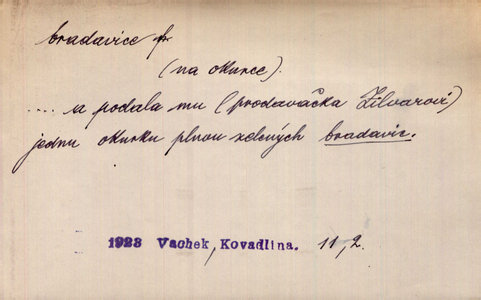 bradavice fr
(na okurce).
.... a podala mu (prodavačka Zilvarovi)
jednu okurku plnou zelených bradavic.
1923 Vachek, Kovadlina. 11,2.